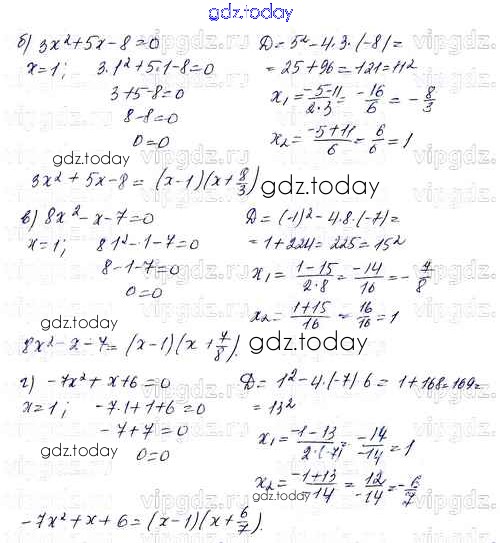 gdz.today
б) 3x²+5x-8=0
x=1; 3·1²+5·1-8=0
3+5-8=0
8-8=0
0=0
D=5²-4·3·(-8)=
=25+96=121=11²
x₁=(-5-11)/(2·3)=-16/6=-8/3
x₂=(-5+11)/6=6/6=1
gdz.today
3x²+5x-8=(x-1)(x+8/3)
gdz.today
в) 8x²-x-7=0
x=1; 8·1²-1-7=0
8-1-7=0
0=0
D=(-1)²-4·8·(-7)=
=1+224=225=15²
x₁=(1-15)/(2·8)=-14/16=-7/8
x₂=(1+15)/16=16/16=1
gdz.today
8x²-x-7=(x-1)(x+7/8).
gdz.today
г) -7x²+x+6=0
x=1; -7·1+1+6=0
-7+7=0
0=0
D=1²-4·(-7)6=1+168=169=
=13²
x₁=(-1-13)/(2·(-7))=-14/-14=1
x₂=(-1+13)/-14=12/-14=-6/7
gdz.today
gdz.today
-7x²+x+6=(x-1)(x+6/7).
vipgdz.ru